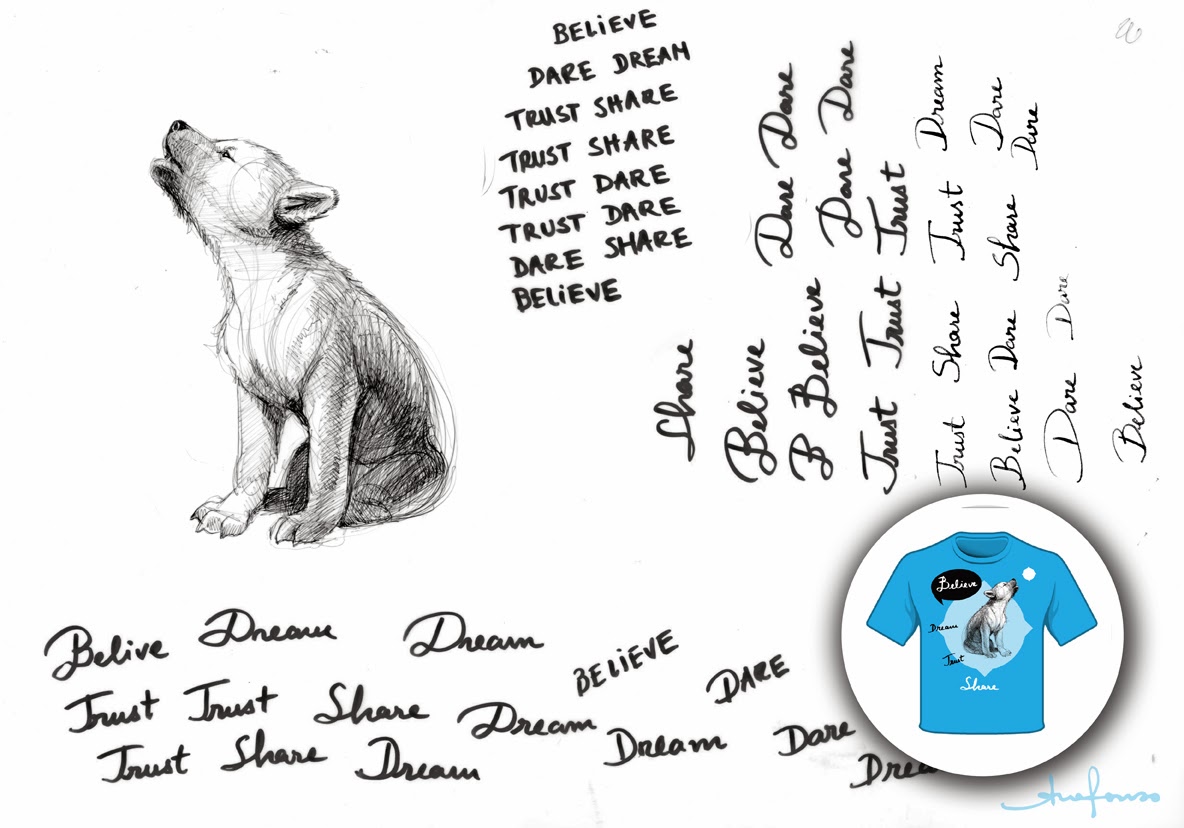 BELiEVE
DARE DREAM
TRUST SHARE
TRUST SHARE
TRUST DARE
TRUST DARE
DARE SHARE
BELiEVE
Share
Believe Dare Dare
B Believe Dare Dare
Trust Trust Trust
Trust Share Trust Dream
Believe Dare Share Dare
Dare
Dare Dare
Believe
Belive Dream Dream
Trust Trust Share Dream
Trust Share Dream
BELiEVE
DARE
Dream Dare
Believe
Dream
Trust
Share